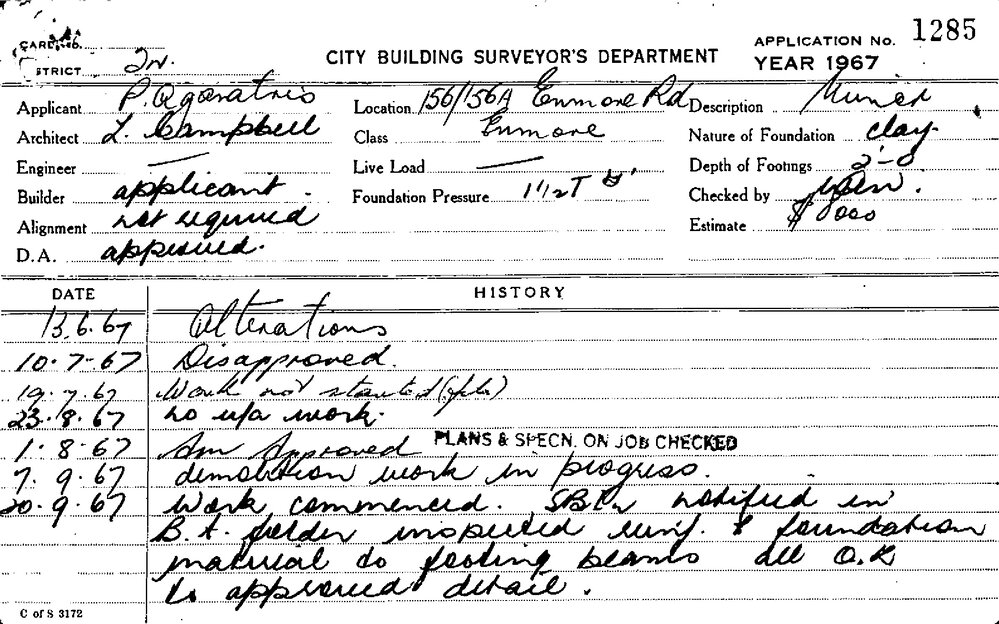 CARD No.
DISTRICT 2N.
CITY BUILDING SURVEYOR'S DEPARTMENT
APPLICATION No. 1285
YEAR 1967
Applicant P. Agoratris
Location 156/156A Enmore Rd
Description Minor
Architect L. Campbell
Class Enmore
Nature of Foundation clay.
Engineer —
Live Load —
Depth of Footings 2'-0
Builder applicant.
Foundation Pressure 1 1/2 T
Checked by
Alignment not required
Estimate $8000
D.A. approved.
DATE HISTORY
13.6.67 Alterations
10.7.67 Disapproved.
19.7.67 Work not started
23.8.67 no u/a work.
1.8.67 Am Approved PLANS & SPECN. ON JOB CHECKED
7.9.67 demolition work in progress.
20.9.67 Work commenced. notified in
B.A. folder inspected reinf. & foundation
material to footing beams all O.K
to approved detail.
C of S 3172